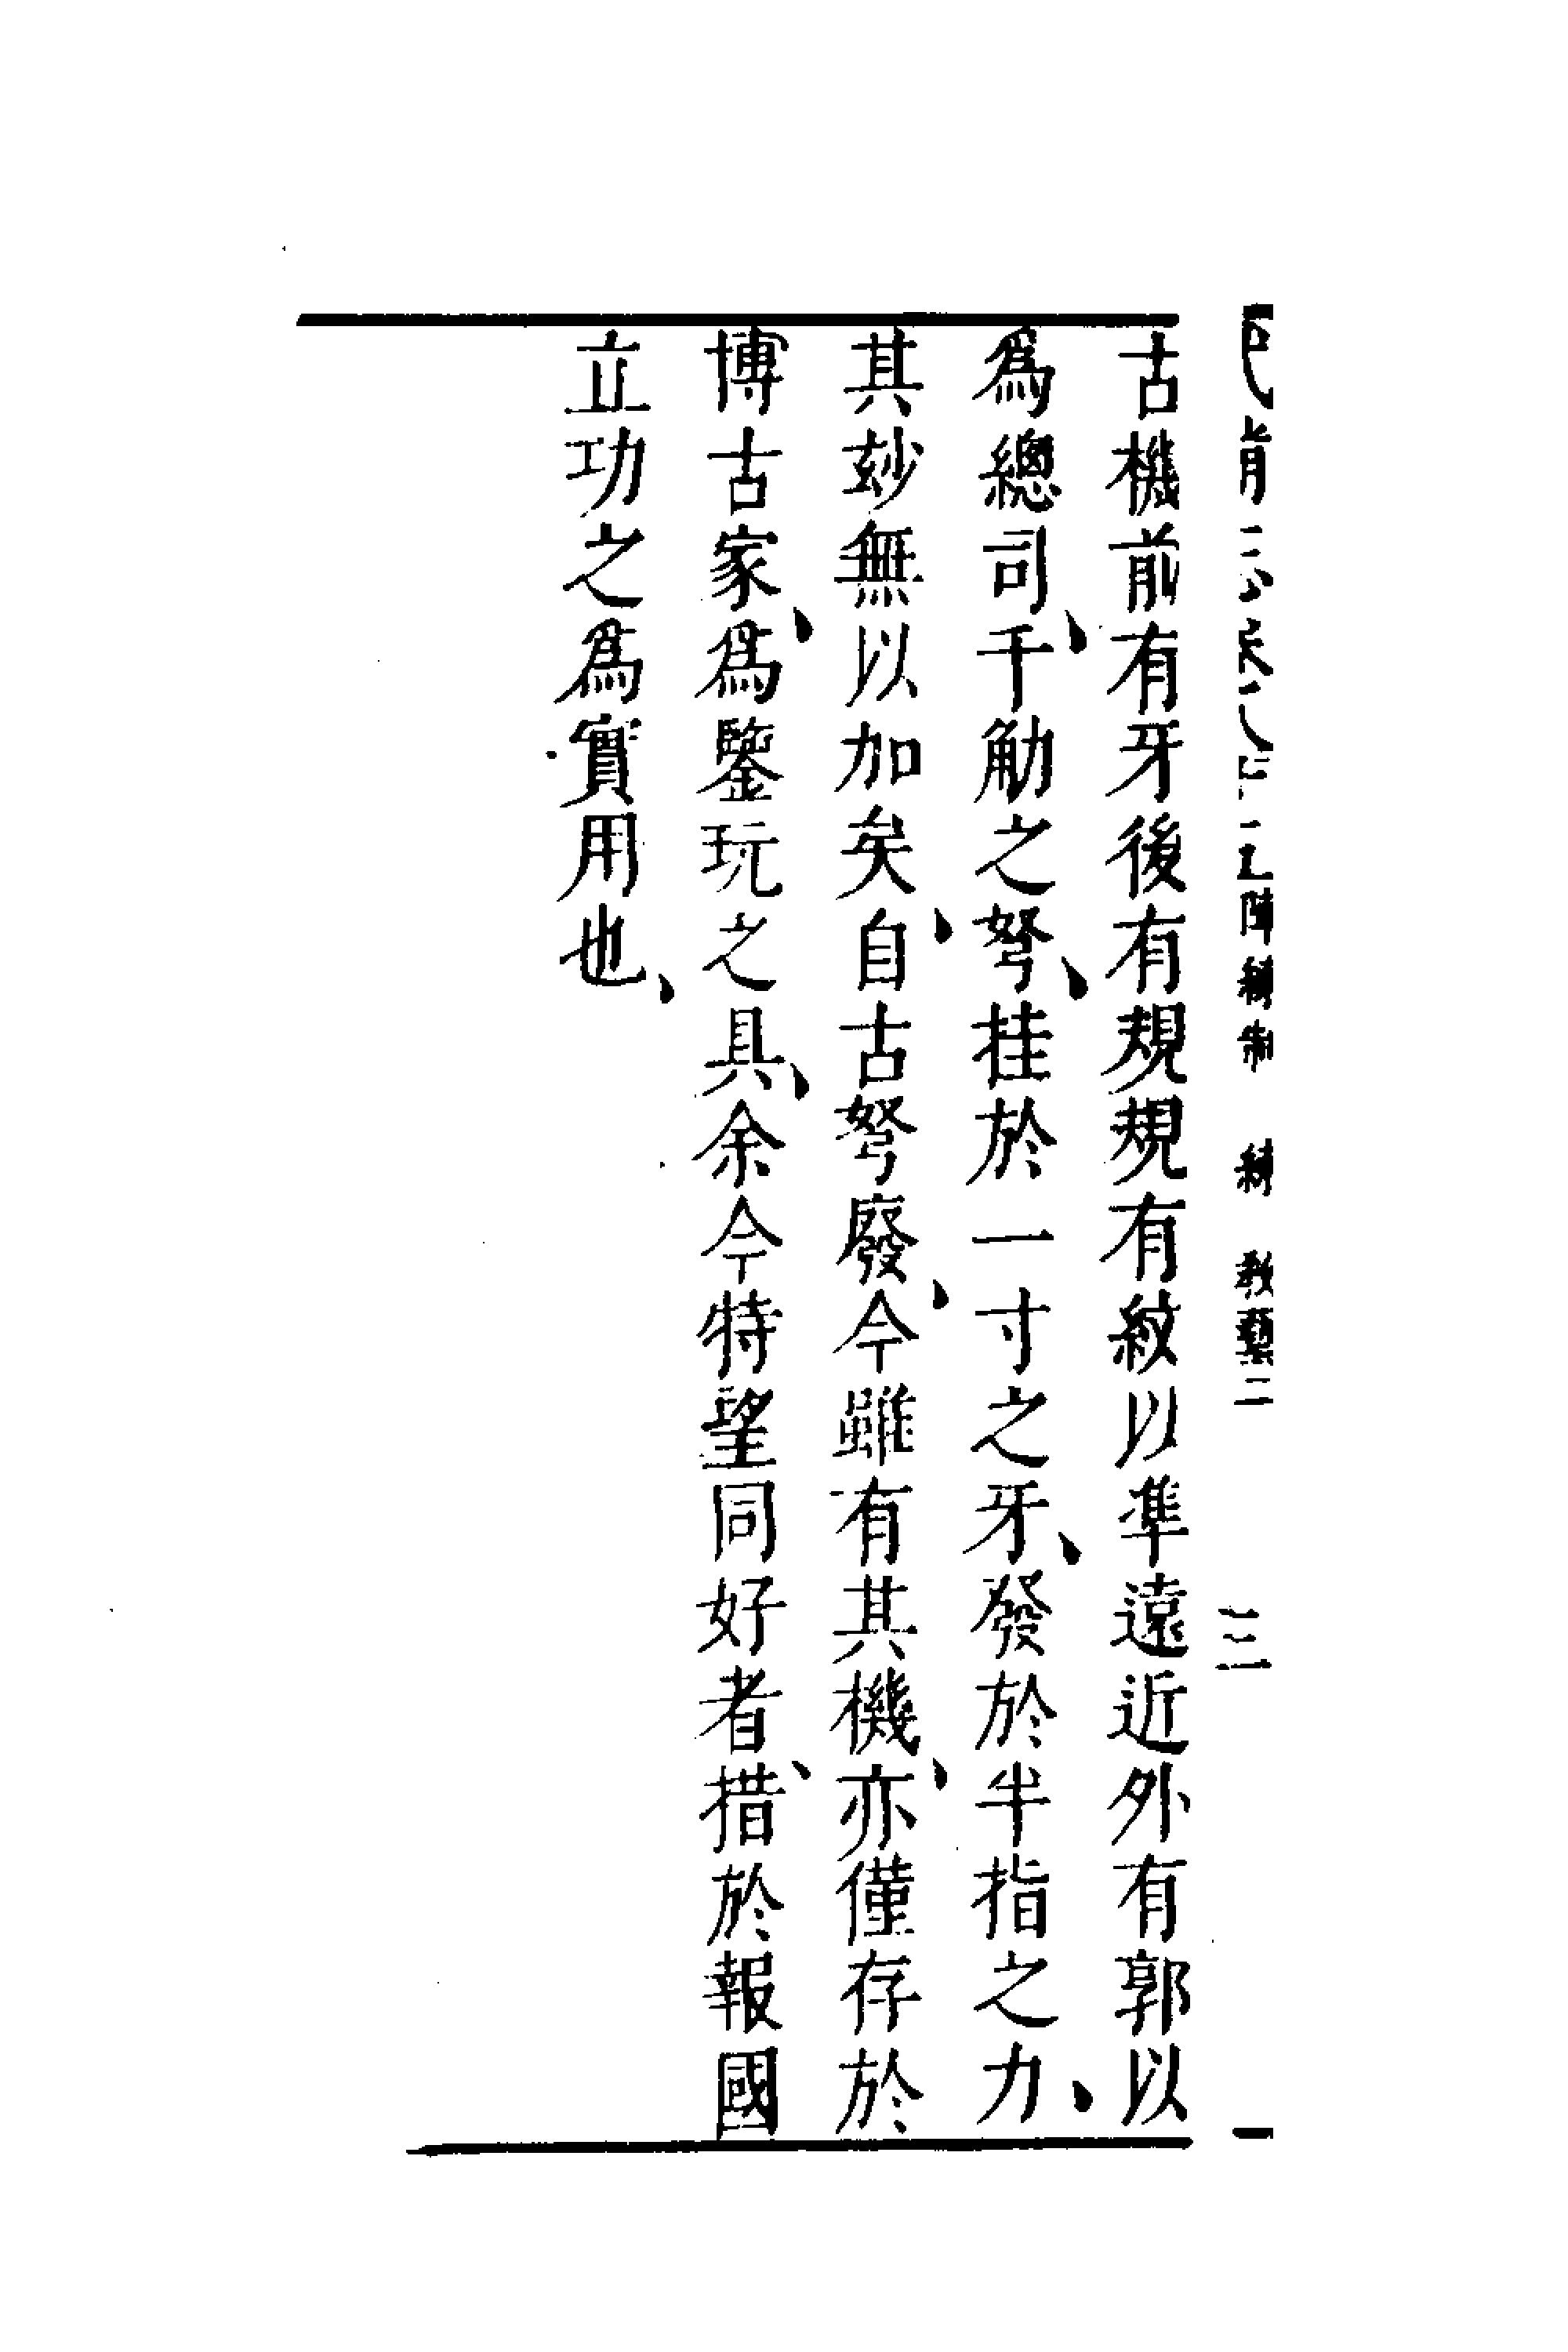 古機前有牙後有規規有紋以準遠近外有郭以
爲總司、千觔之弩、挂於一寸之牙、發於半指之力、
其玅無以加矣、自古弩廢、今雖有其機、亦僅存於
博古家、爲鑒玩之具、余今特望同好者、措於報國
立功之爲實用也、
陣練制 練 教藝二
三